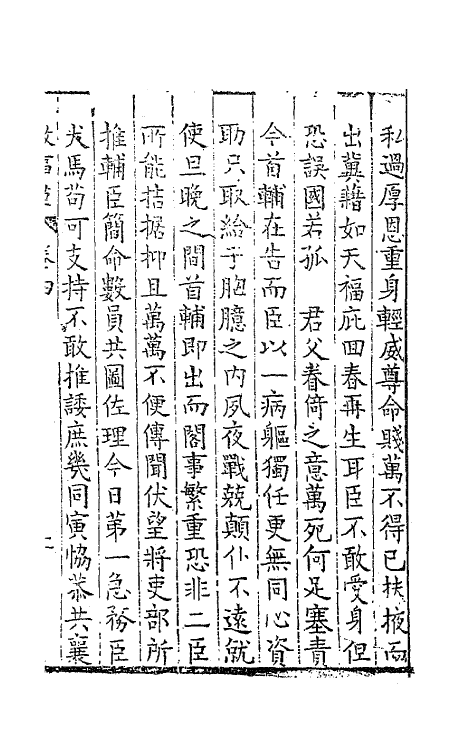 私過厚恩重身輕威尊命賤萬不得已扶掖而
出冀藉如天福庇回春再生耳臣不敢愛身但
恐誤國若孤　君父眷倚之意萬死何足塞責
今首輔在告而臣以一病軀獨任更無同心資
助只取給于胸臆之內夙夜戰兢顛仆不遠就
使旦晚之間首輔即出而閣事繁重恐非二臣
所能拮据抑且萬萬不便傳聞伏望將吏部所
推輔臣簡命數員共圖佐理今日第一急務臣
犬馬苟可支持不敢推諉庶幾同寅恊恭共襄
卷四